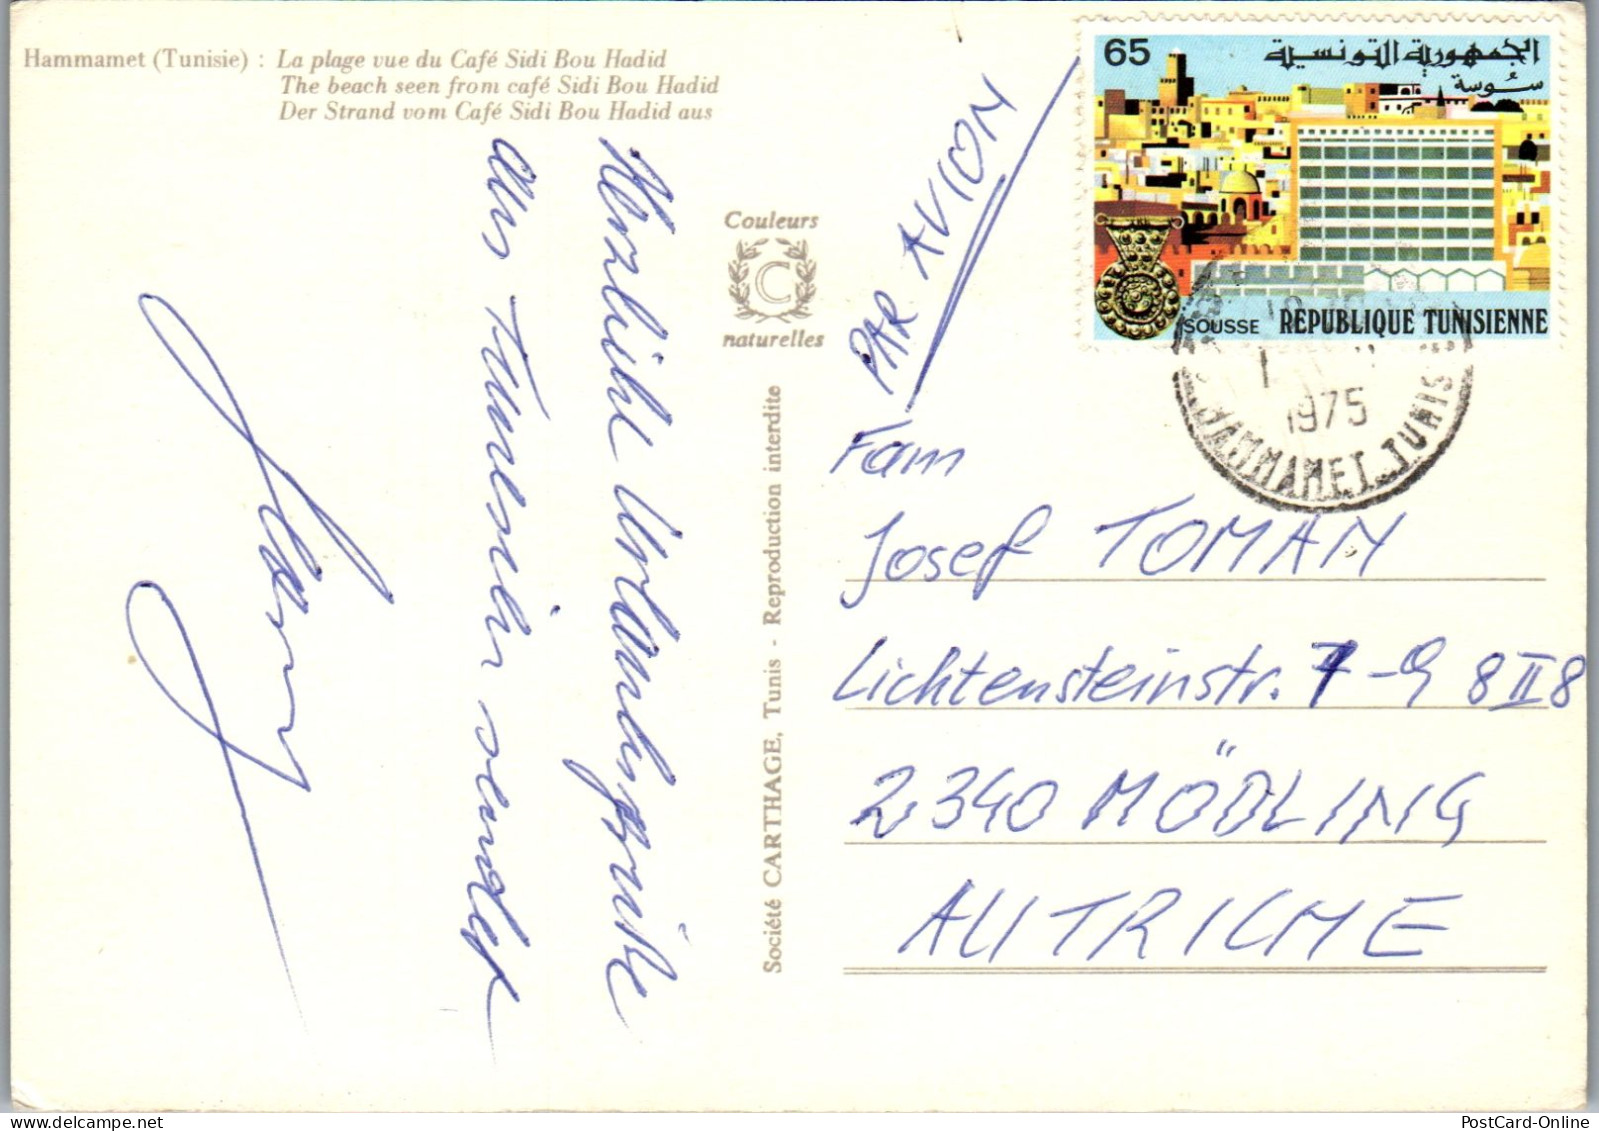 Hammamet (Tunisie) : La plage vue du Café Sidi Bou Hadid
The beach seen from café Sidi Bou Hadid
Der Strand vom Café Sidi Bou Hadid aus
Herzliche Urlaubsgrüße
aus Tunesien sendet
Couleurs
C
naturelles
Société CARTHAGE, Tunis - Reproduction interdite
PAR AVION
65
الجمهورية التونسية
سوسة
SOUSSE REPUBLIQUE TUNISIENNE
1975
HAMMAMET TUNIS
Fam
Josef TOMAN
Lichtensteinstr. 7-9 8 II 8
2340 MÖDLING
AUTRICHE
PostCard-Online